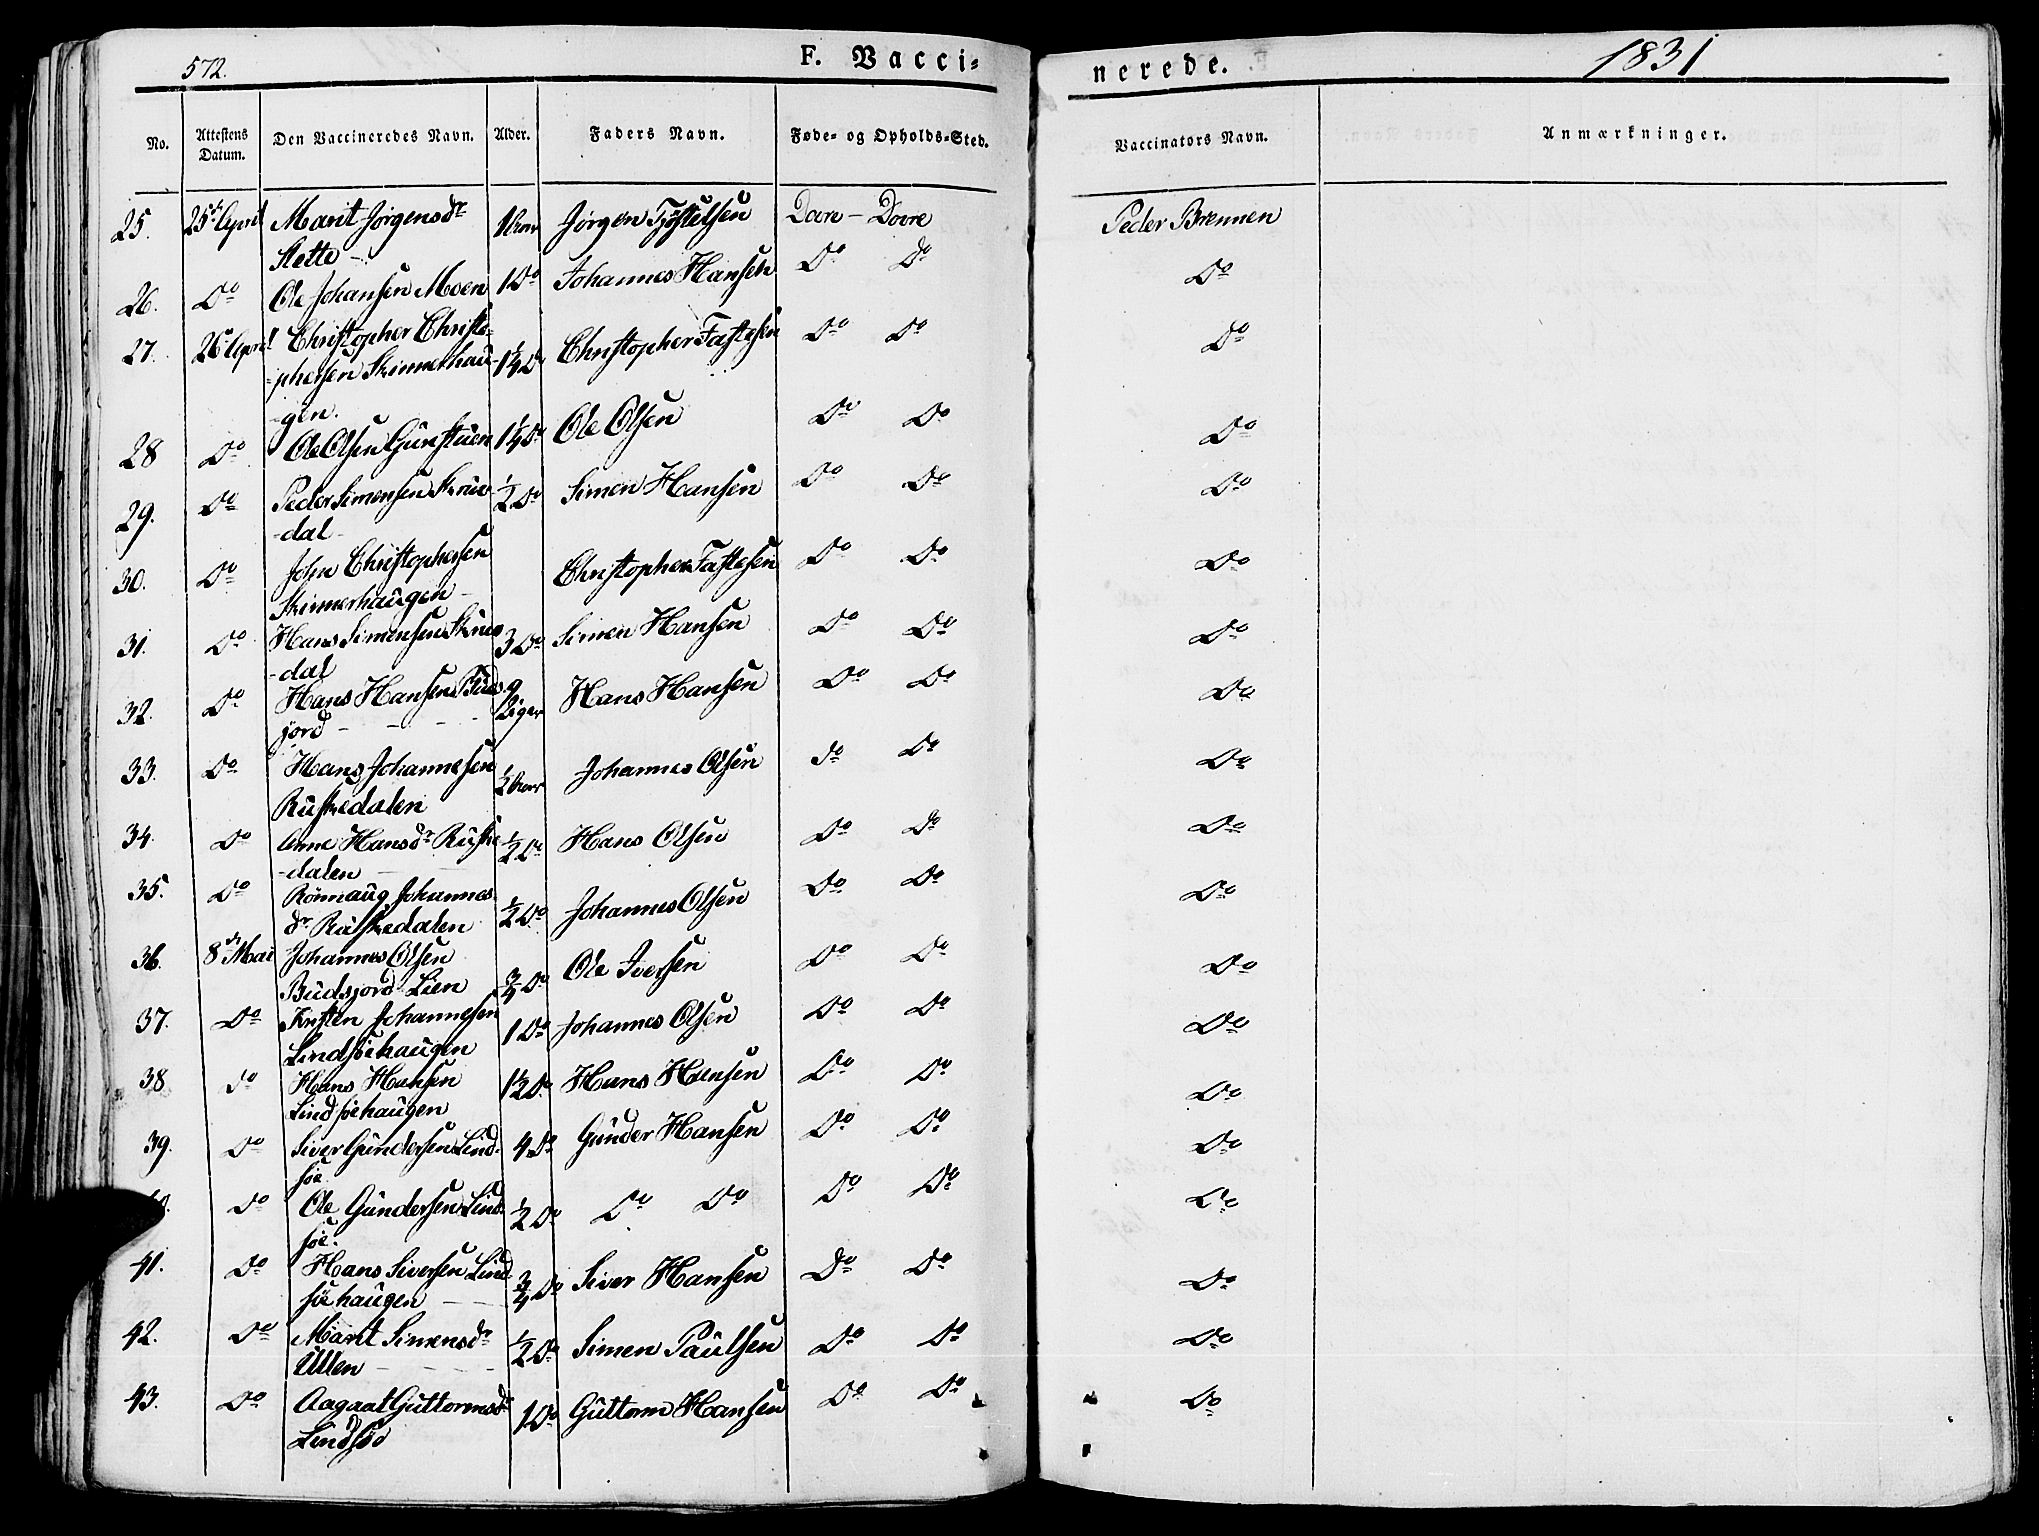 572.
F. Vacci-
nerede.
1831
No. Attestens Datum. Den Vaccineredes Navn. Alder. Faders Navn. Føde- og Opholds-Sted. Vaccinators Navn. Anmærkninger.
25. 25de April Marit Jørgensdr 1 Aar Jørgen Dovre - Dovre Peder Brennen
26. Do Ole Johansen Moen 1 Do Johannes Hansen Do Do Do
27. 26 April Christopher Christo- 1 1/4 Do Christopher Fastesen Do Do Do
-phersen Skinnerhau-
-gen.
28 Do Ole Olsen Gunstuen 1 1/4 Do Ole Olsen Do Do Do
29. Do Peder Simensen Skrue- 1/2 Do Simen Hansen Do Do Do
-dal
30. Do John Christophersen Christopher Fastesen Do Do Do
Skinnerhaugen -
31. Do Hans Simensen Skrue 3 Do Simen Hansen Do Do Do
-dal
32. Do Hans Hansen Buds- 9 Uger Hans Hansen Do Do Do
jord
33. Do Hans Johannesen 1/2 Aar Johannes Olsen Do Do Do
Ruskedalen
34. Do Anne Hansdr Ruske 1/2 Do Hans Olsen Do Do Do
-dalen
35. Do Rønnaug Johannes- 1/2 Do Johannes Olsen Do Do Do
dr Ruskedalen
36. 8de Mai Johannes Olsen 3/4 Do Ole Iversen Do Do Do
Budsjord Lien
37. Do Kristen Johannesen 1 Do Johannes Olsen Do Do Do
Lindsøehaugen
38 Do Hans Hansen 1 1/2 Do Hans Hansen Do Do Do
Lindsøehaugen
39. Do Siver Gundersen Lind- 4 Do Gunder Hansen Do Do Do
søe
Do Ole Gundersen Lind- 1/2 Do Do Do Do Do Do
søe.
41. Do Hans Siversen Lind 3/4 Do Siver Hansen Do Do Do
søehaugen
42. Do Marit Simensdr 1/2 Do Simen Paulsen Do Do Do
Ullen
43. Do Aagaat Guttormsdr 1 Do Guttorm Hansen Do Do Do
Lindsøe